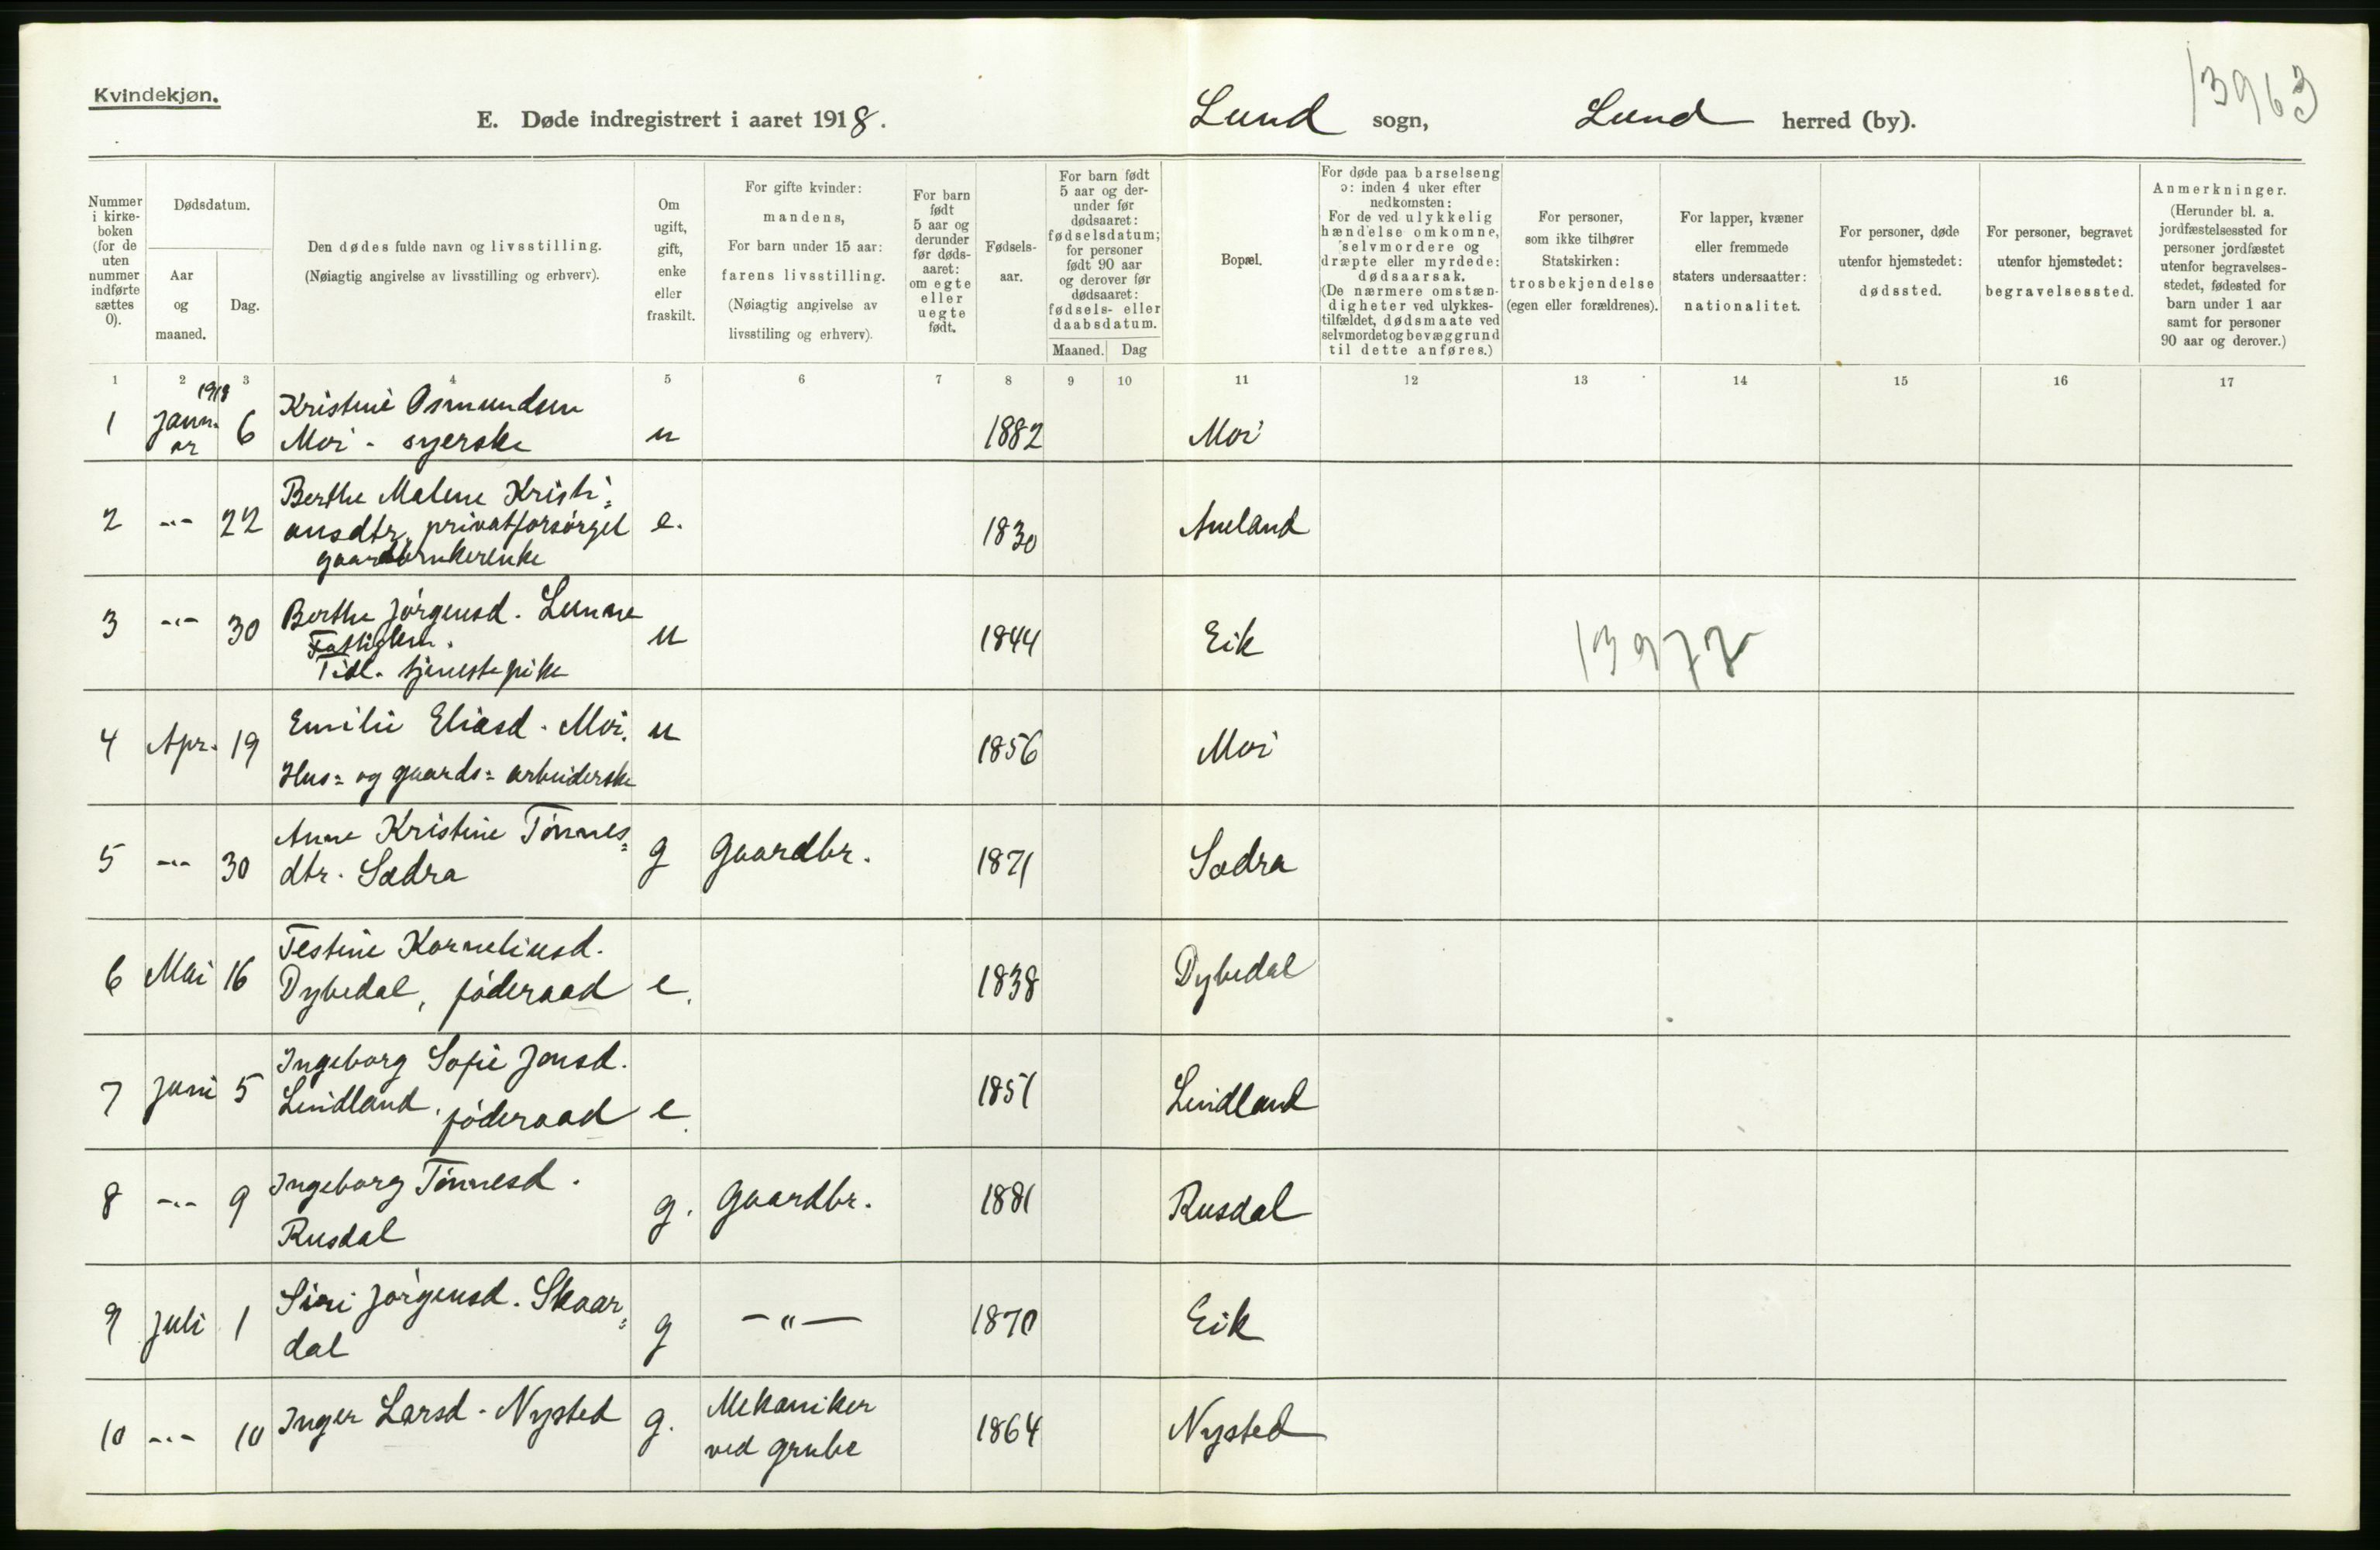 Kvindekjøn.
13963
E. Døde indregistrert i aaret 1918.
Lund sogn, Lund herred (by).
Nummer i kirkeboken (for de uten nummer indførte sættes 0).
Dødsdatum.
Aar og maaned.
Dag.
Den dødes fulde navn og livsstilling.
(Nøiagtig angivelse av livsstilling og erhverv).
Om ugift, gift, enke eller fraskilt.
For gifte kvinder: mandens,
For barn under 15 aar: farens livsstilling.
(Nøiagtig angivelse av livsstiling og erhverv).
For barn født 5 aar og derunder før dødsaaret: om egte eller uegte født.
Fødselsaar.
For barn født 5 aar og derunder før dødsaaret: fødselsdatum; for personer født 90 aar og derover før dødsaaret: fødsels- eller daabsdatum.
Maaned. Dag
Bopæl.
For døde paa barselseng ɔ: inden 4 uker efter nedkomsten:
For de ved ulykkelig hændelse omkomne, selvmordere og dræpte eller myrdede: dødsaarsak.
(De nærmere omstændigheter ved ulykkestilfældet, dødsmaate ved selvmordet og bevæggrund til dette anføres.)
For personer, som ikke tilhører Statskirken: trosbekjendelse (egen eller forældrenes).
For lapper, kvæner eller fremmede staters undersaatter: nationalitet.
For personer, døde utenfor hjemstedet: dødssted.
For personer, begravet utenfor hjemstedet: begravelsessted.
Anmerkninger.
(Herunder bl. a. jordfæstelsessted for personer jordfæstet utenfor begravelsesstedet, fødested for barn under 1 aar samt for personer 90 aar og derover.)
1 2 3 4 5 6 7 8 9 10 11 12 13 14 15 16 17
1918
1 Janu.ar 6 Kristine Osmundsen
Moi - syerske u 1882 Moi
2 -"- 22 Berthe Malene Kristi=
ansdtr, privatforsørget e. 1830 Aueland
gaardbrukerenke
3 -"- 30 Berthe Jørgensd. Lunne
Fattiglem. u 1844 Eik 13977
Tidl. tjenestepike
4 Apr. 19 Emilie Eliasd. Moi. u 1856 Moi
Hus= og gaards= arbeiderske
5 -"- 30 Anne Kristine Tønnes=
dtr. Sædra g Gaardbr. 1871 Sædra
6 Mai 16 Testine Korneliusd.
Dybedal, føderaad e. 1838 Dybedal
7 Juni 5 Ingeborg Sofie Jonsd.
Lindland, føderaad e. 1851 Lindland
8 -"- 9 Ingeborg Tønnesd.
Rusdal g. Gaardbr. 1881 Rusdal
9 Juli 1 Siri Jørgensd. Skaar=
dal g -"- 1870 Eik
10 -"- 10 Inger Larsd - Nysted g. Mekaniker
ved grube 1864 Nysted